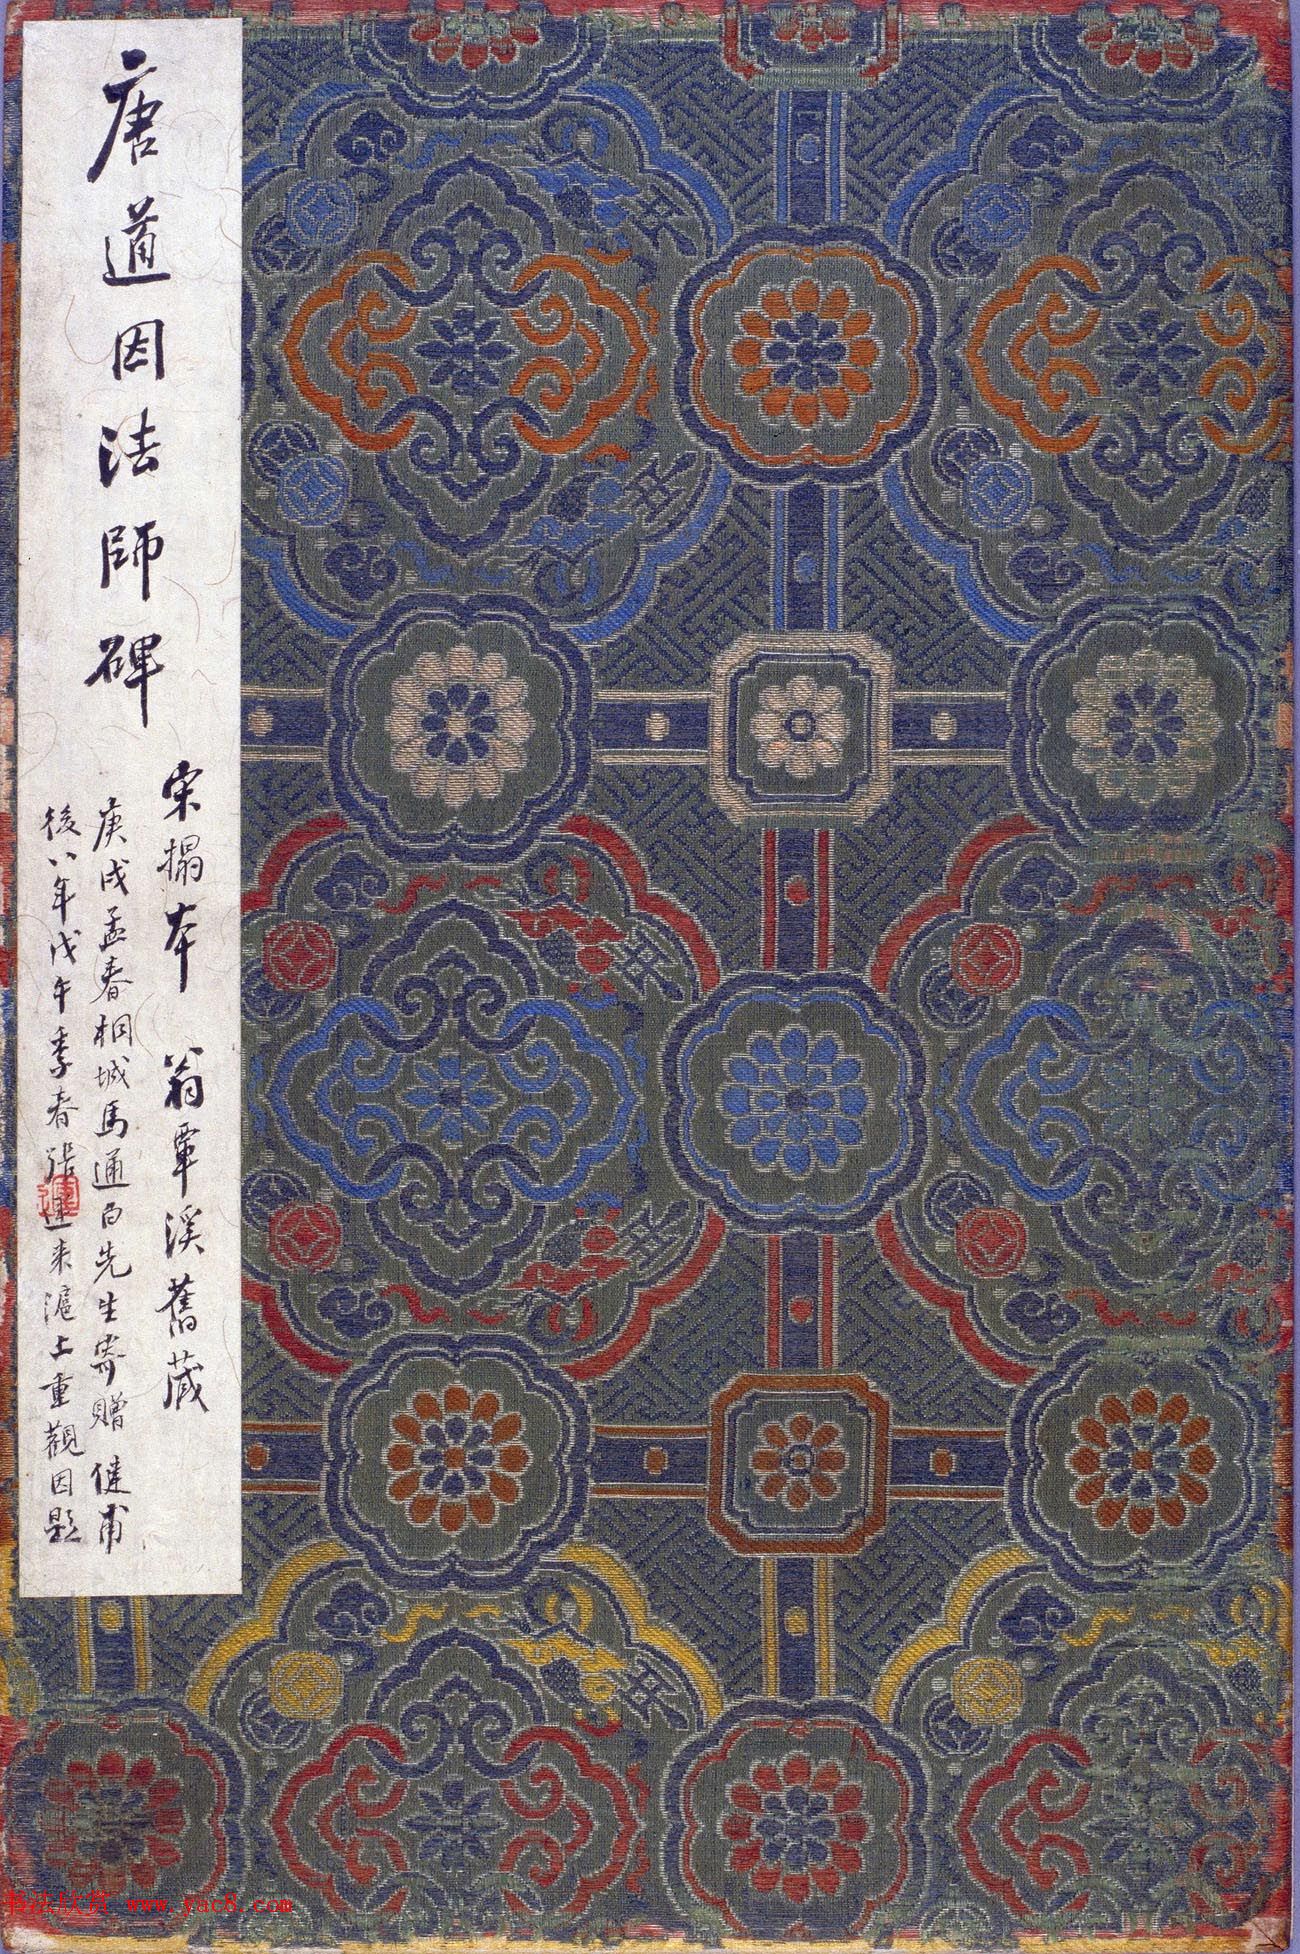 唐道因法師碑
宋搨本 翁覃溪舊藏
庚戌孟春桐城馬通白先生寄贈 健甫
後八年戊午季春張運來滬上重觀因題
书法欣赏 www.yac8.com